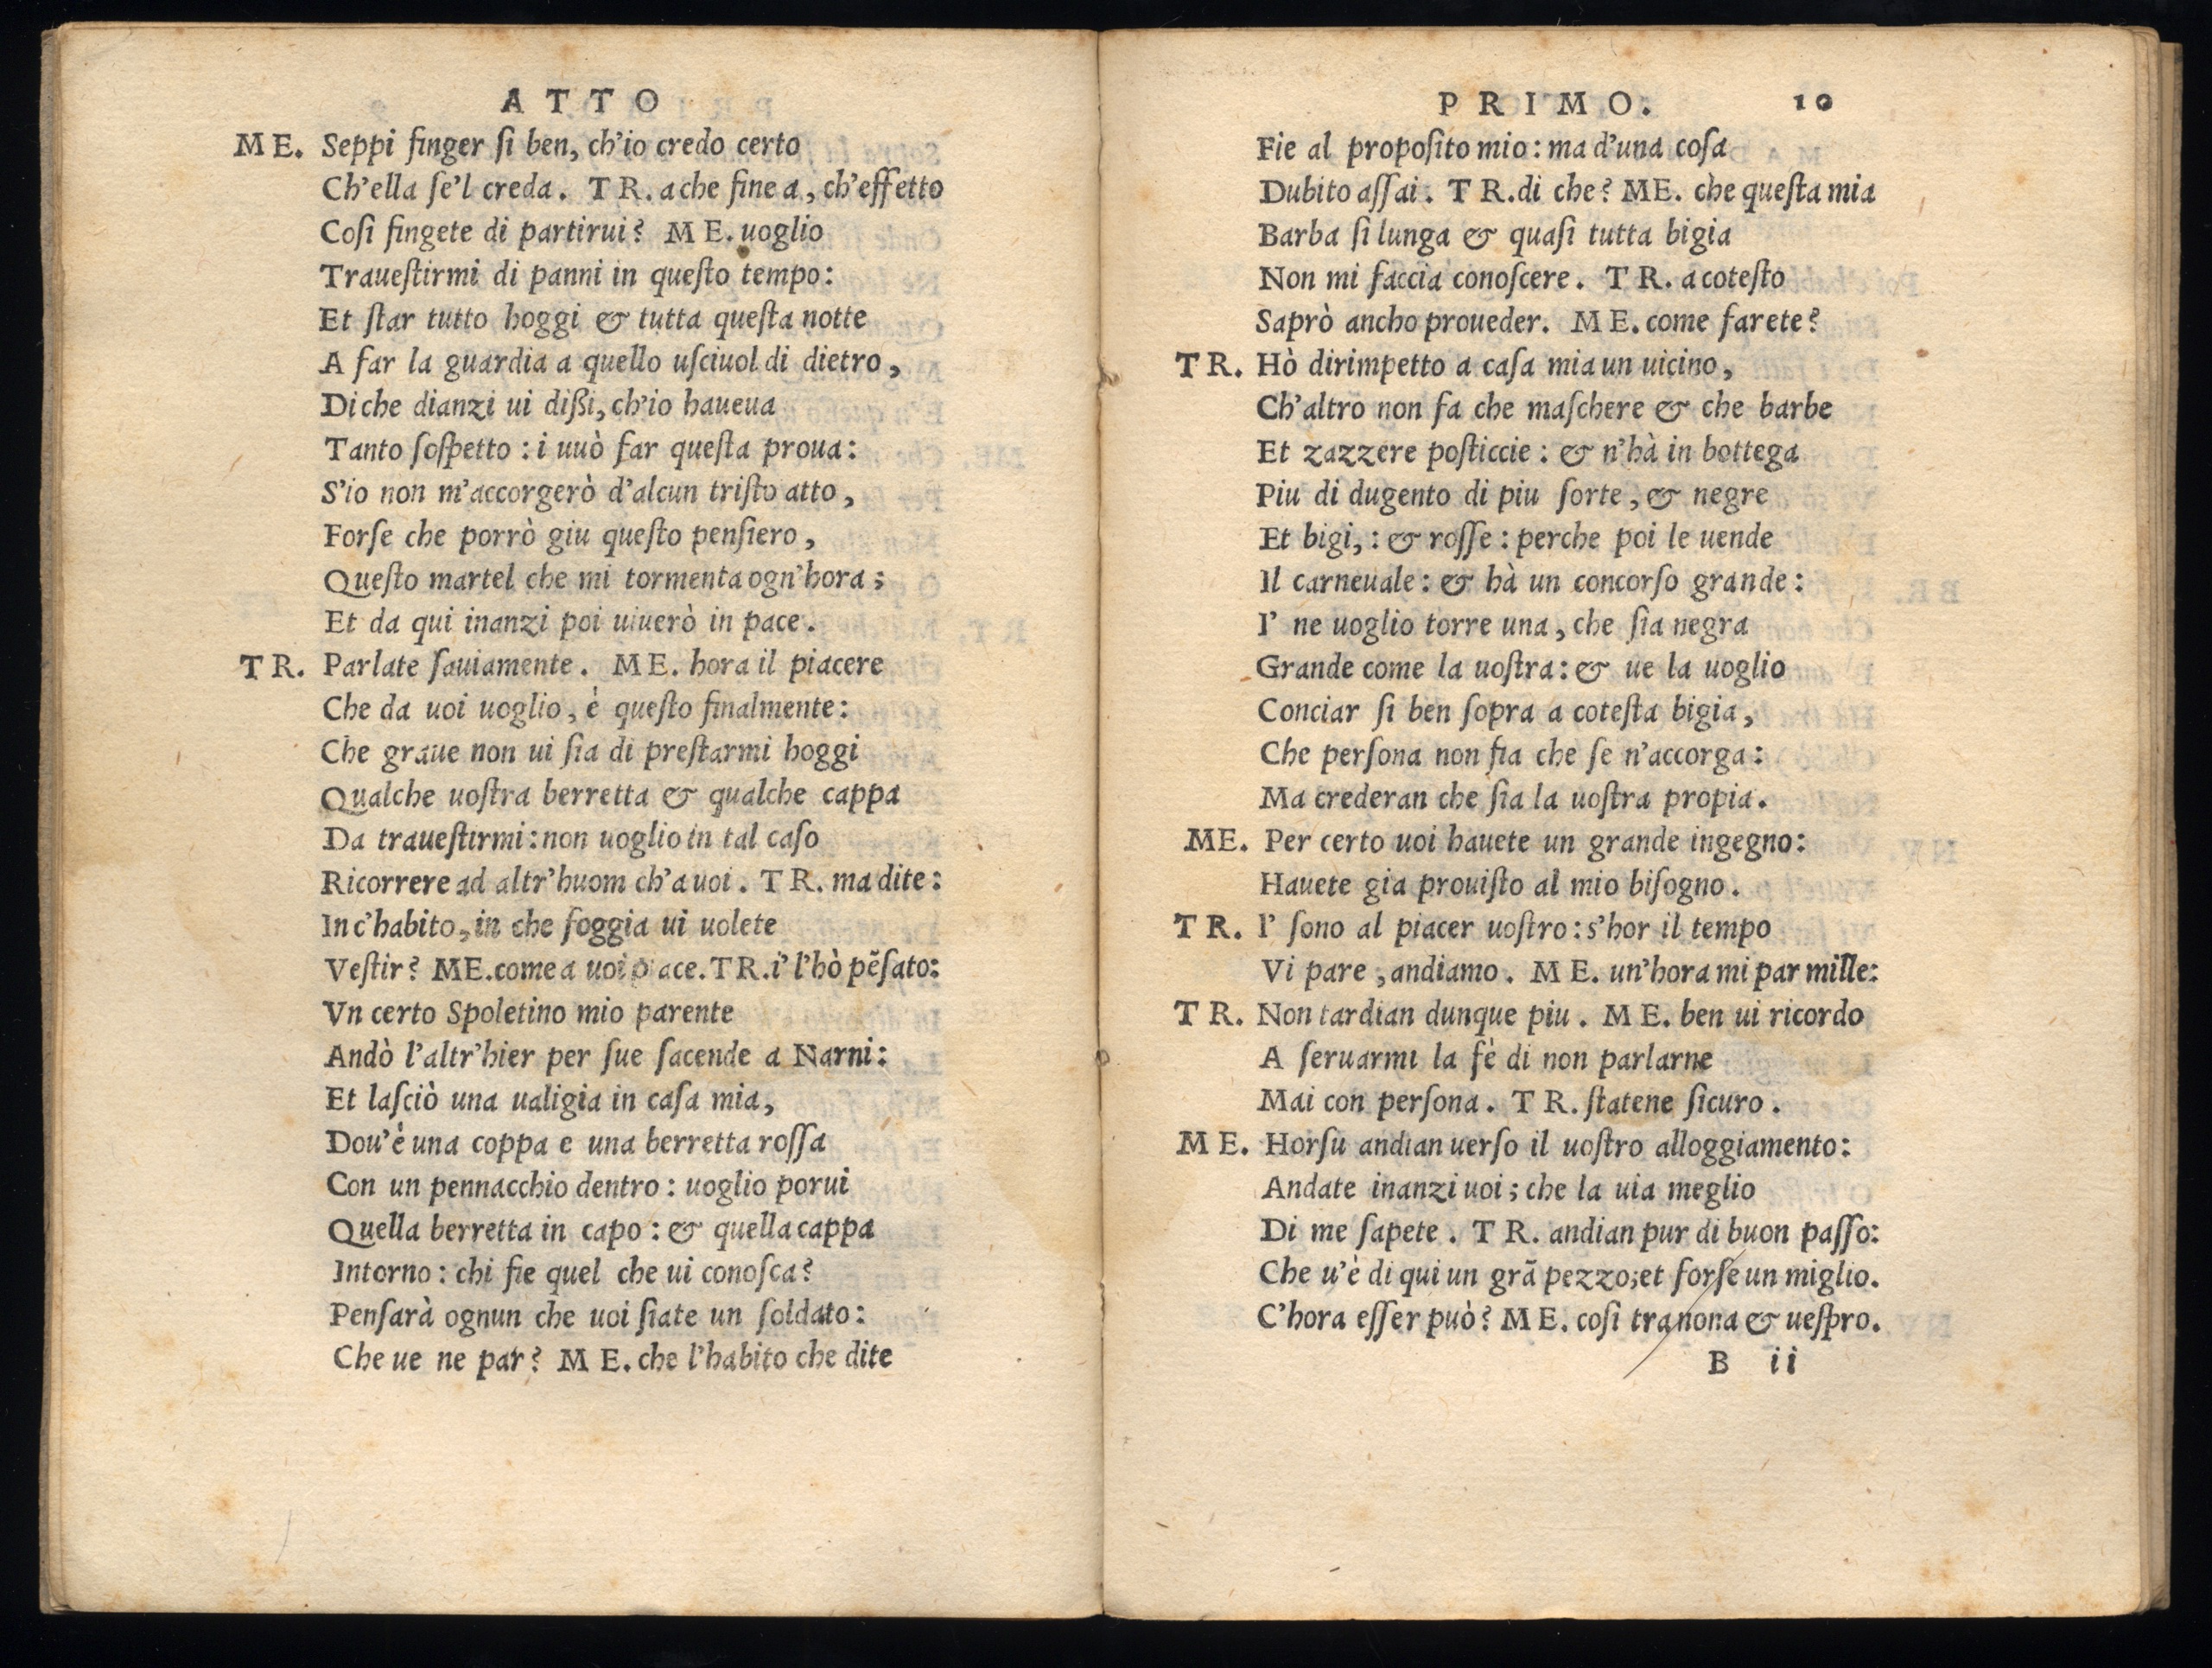 ATTO
ME. Seppi finger ſi ben, ch'io credo certo
Ch'ella ſe'l creda. TR. a che fine a, ch'effetto
Coſi fingete di partirui? ME. uoglio
Traueſtirmi di panni in queſto tempo:
Et ſtar tutto hoggi & tutta queſta notte
A far la guardia a quello uſciuol di dietro,
Di che dianzi ui dißi, ch'io haueua
Tanto ſoſpetto: i uuò far queſta proua:
S'io non m'accorgerò d'alcun triſto atto,
Forſe che porrò giu queſto penſiero,
Queſto martel che mi tormenta ogn'hora;
Et da qui inanzi poi uiuerò in pace.
TR. Parlate ſauiamente. ME. hora il piacere
Che da uoi uoglio, è queſto finalmente:
Che graue non ui ſia di preſtarmi hoggi
Qualche uoſtra berretta & qualche cappa
Da traueſtirmi: non uoglio in tal caſo
Ricorrere ad altr'huom ch'a uoi. TR. ma dite:
In c'habito, in che foggia ui uolete
Veſtir? ME. come a uoi piace. TR. i' l'hò pẽſato:
Vn certo Spoletino mio parente
Andò l'altr'hier per ſue facende a Narni:
Et laſciò una ualigia in caſa mia,
Dou'è una coppa e una berretta roſſa
Con un pennacchio dentro: uoglio porui
Quella berretta in capo: & quella cappa
Intorno: chi fie quel che ui conoſca?
Penſarà ognun che uoi ſiate un ſoldato:
Che ue ne par? ME. che l'habito che dite
PRIMO. 10
Fie al propoſito mio: ma d'una coſa
Dubito aſſai. TR. di che? ME. che queſta mia
Barba ſi lunga & quaſi tutta bigia
Non mi faccia conoſcere. TR. a coteſto
Saprò ancho proueder. ME. come farete?
TR. Hò dirimpetto a caſa mia un uicino,
Ch'altro non fa che maſchere & che barbe
Et zazzere poſticcie: & n'hà in bottega
Piu di dugento di piu ſorte, & negre
Et bigi,: & roſſe: perche poi le uende
Il carneuale: & hà un concorſo grande:
I' ne uoglio torre una, che ſia negra
Grande come la uoſtra: & ue la uoglio
Conciar ſi ben ſopra a coteſta bigia,
Che perſona non fia che ſe n'accorga:
Ma crederan che ſia la uoſtra propia.
ME. Per certo uoi hauete un grande ingegno:
Hauete gia prouiſto al mio biſogno.
TR. I' ſono al piacer uoſtro: s'hor il tempo
Vi pare, andiamo. ME. un'hora mi par mille:
TR. Non tardian dunque piu. ME. ben ui ricordo
A ſeruarmi la fè di non parlarne
Mai con perſona. TR. ſtatene ſicuro.
ME. Horſu andian uerſo il uoſtro alloggiamento:
Andate inanzi uoi; che la uia meglio
Di me ſapete. TR. andian pur di buon paſſo:
Che u'è di qui un grã pezzo; et forſe un miglio.
C'hora eſſer può? ME. coſi tra nona & ueſpro.
B ii